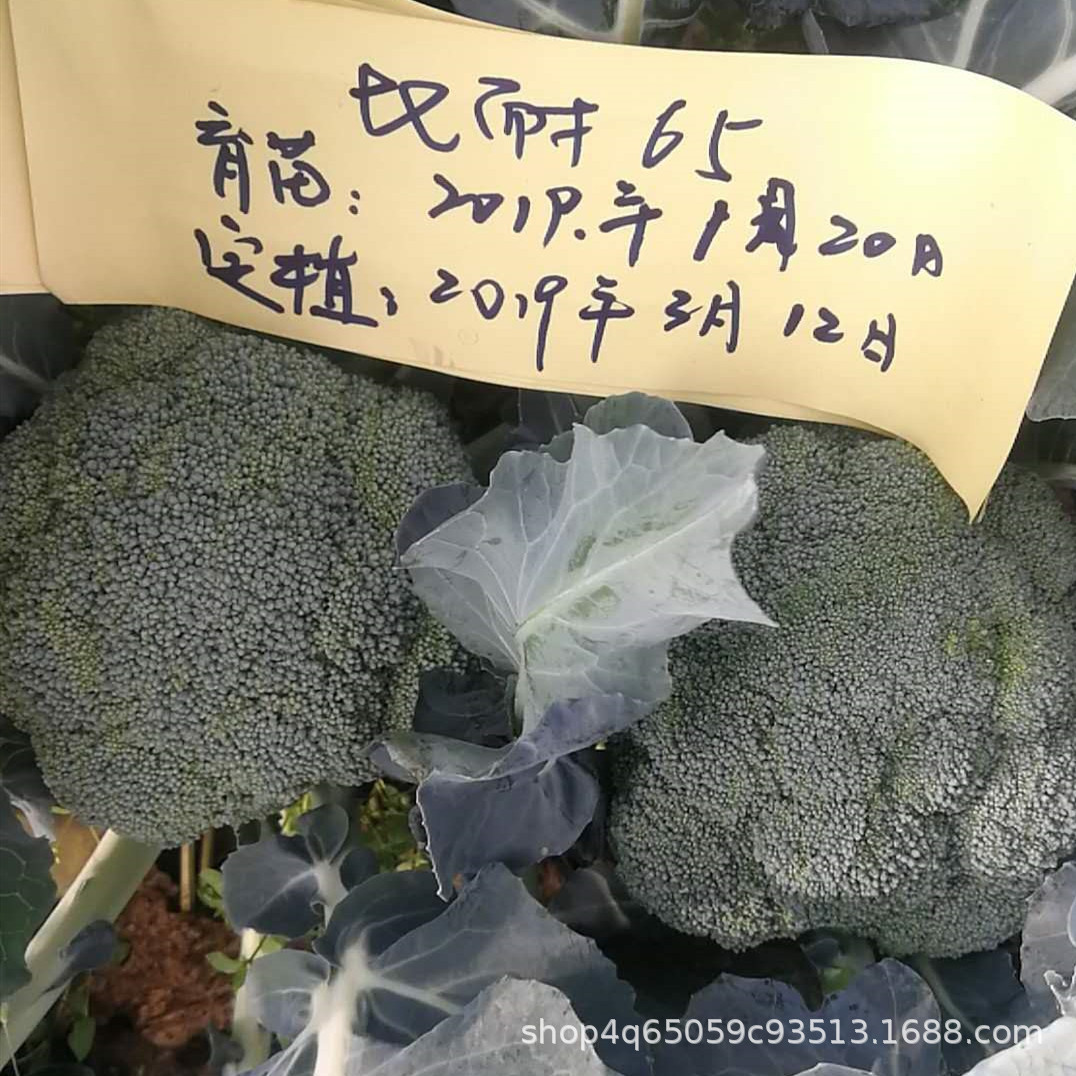 耐 65
育苗: 2019.年1月20日
定植: 2019年3月12日
shop4q65059c93513.1688.com